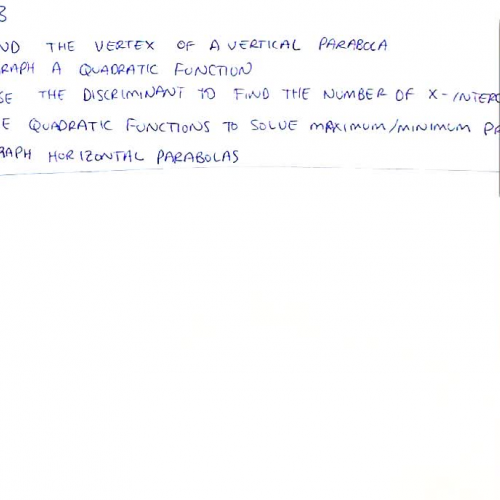 3
ND THE VERTEX OF A VERTICAL PARABOLA
RAPH A QUADRATIC FUNCTION
SE THE DISCRIMINANT TO FIND THE NUMBER OF X-INTERC
E QUADRATIC FUNCTIONS TO SOLVE MAXIMUM/MINIMUM PR
RAPH HORIZONTAL PARABOLAS